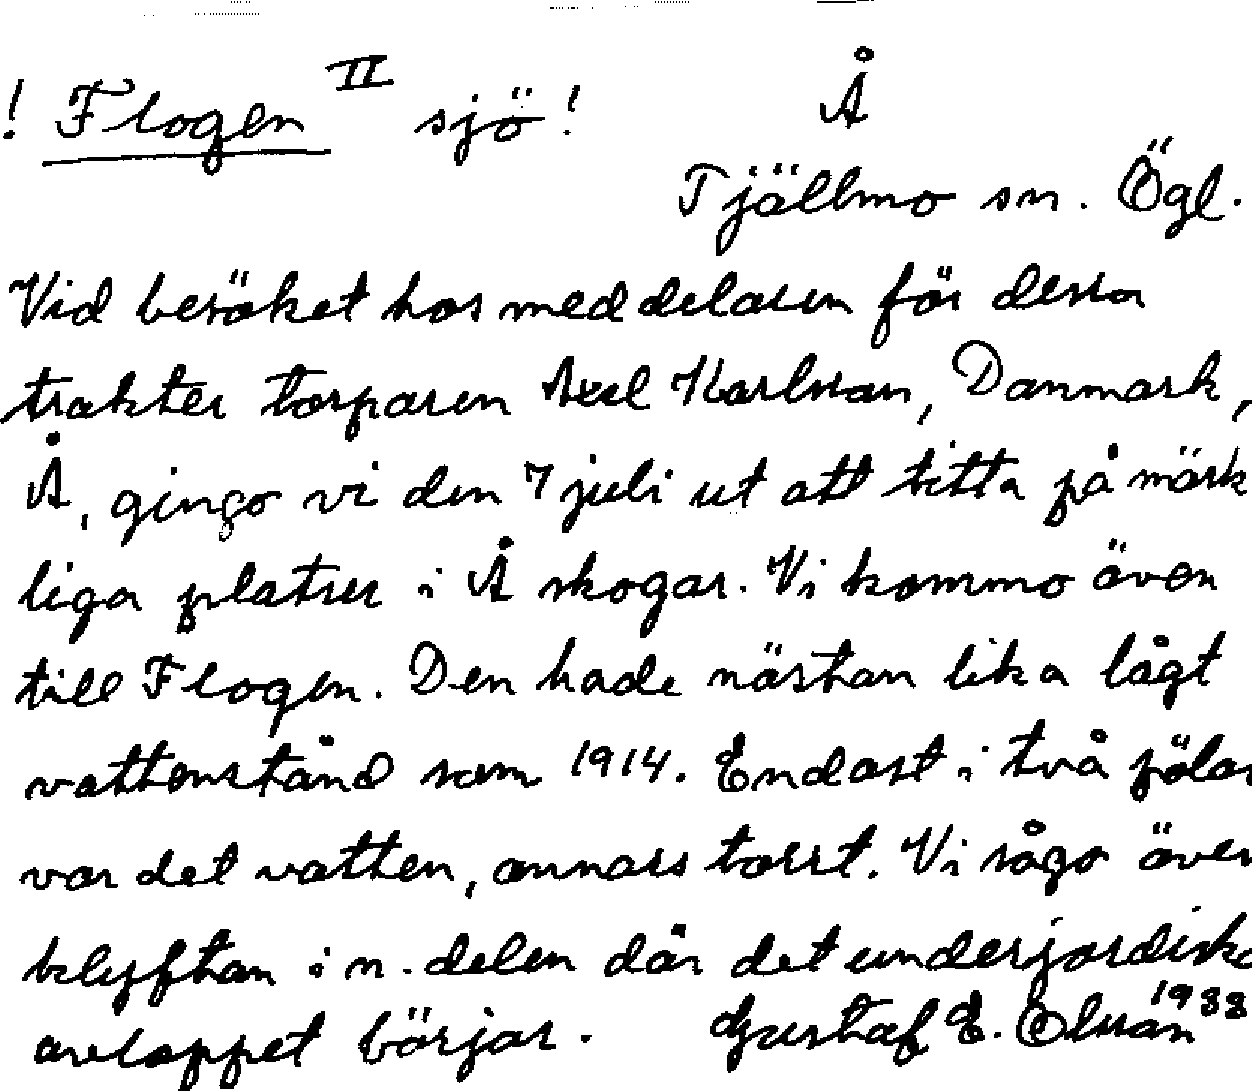 ! Flogen II sjö !
Å
Tjällmo sn. Ögl.
Vid besöket hos meddelaren för dessa
trakter torparen Axel Karlsson, Danmark,
Å, gingo vi den 7 juli ut att titta på märk
liga platser i Å skogar. Vi kommo även
till Flogen. Den hade nästan lika lågt
vattenstånd som 1914. Endast i två pölar
var det vatten, annars torrt. Vi sågo även
klyftan i n. delen där det underjordiska
avloppet börjar. Gustaf E. Olsson